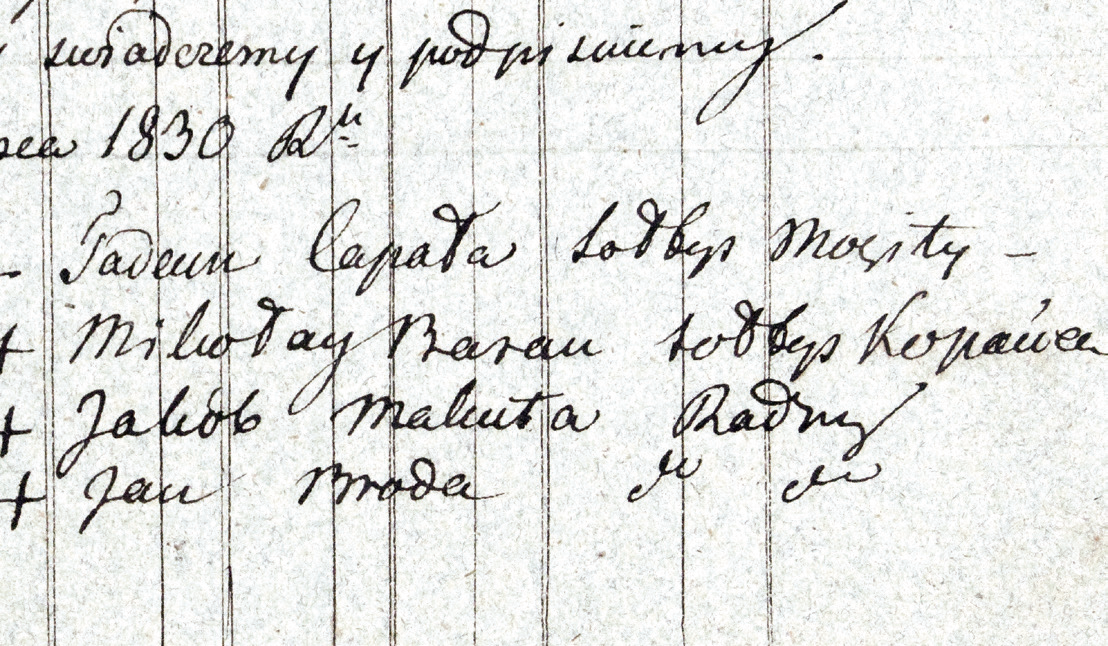 swiadczemy y podpisuiemy.
1830 Ru
– Tadeusz Capała sołtys Mosty –
+ Mikołay Baran sołtys Kopańca
+ Jakób Makuła Radny
+ Jan Broda